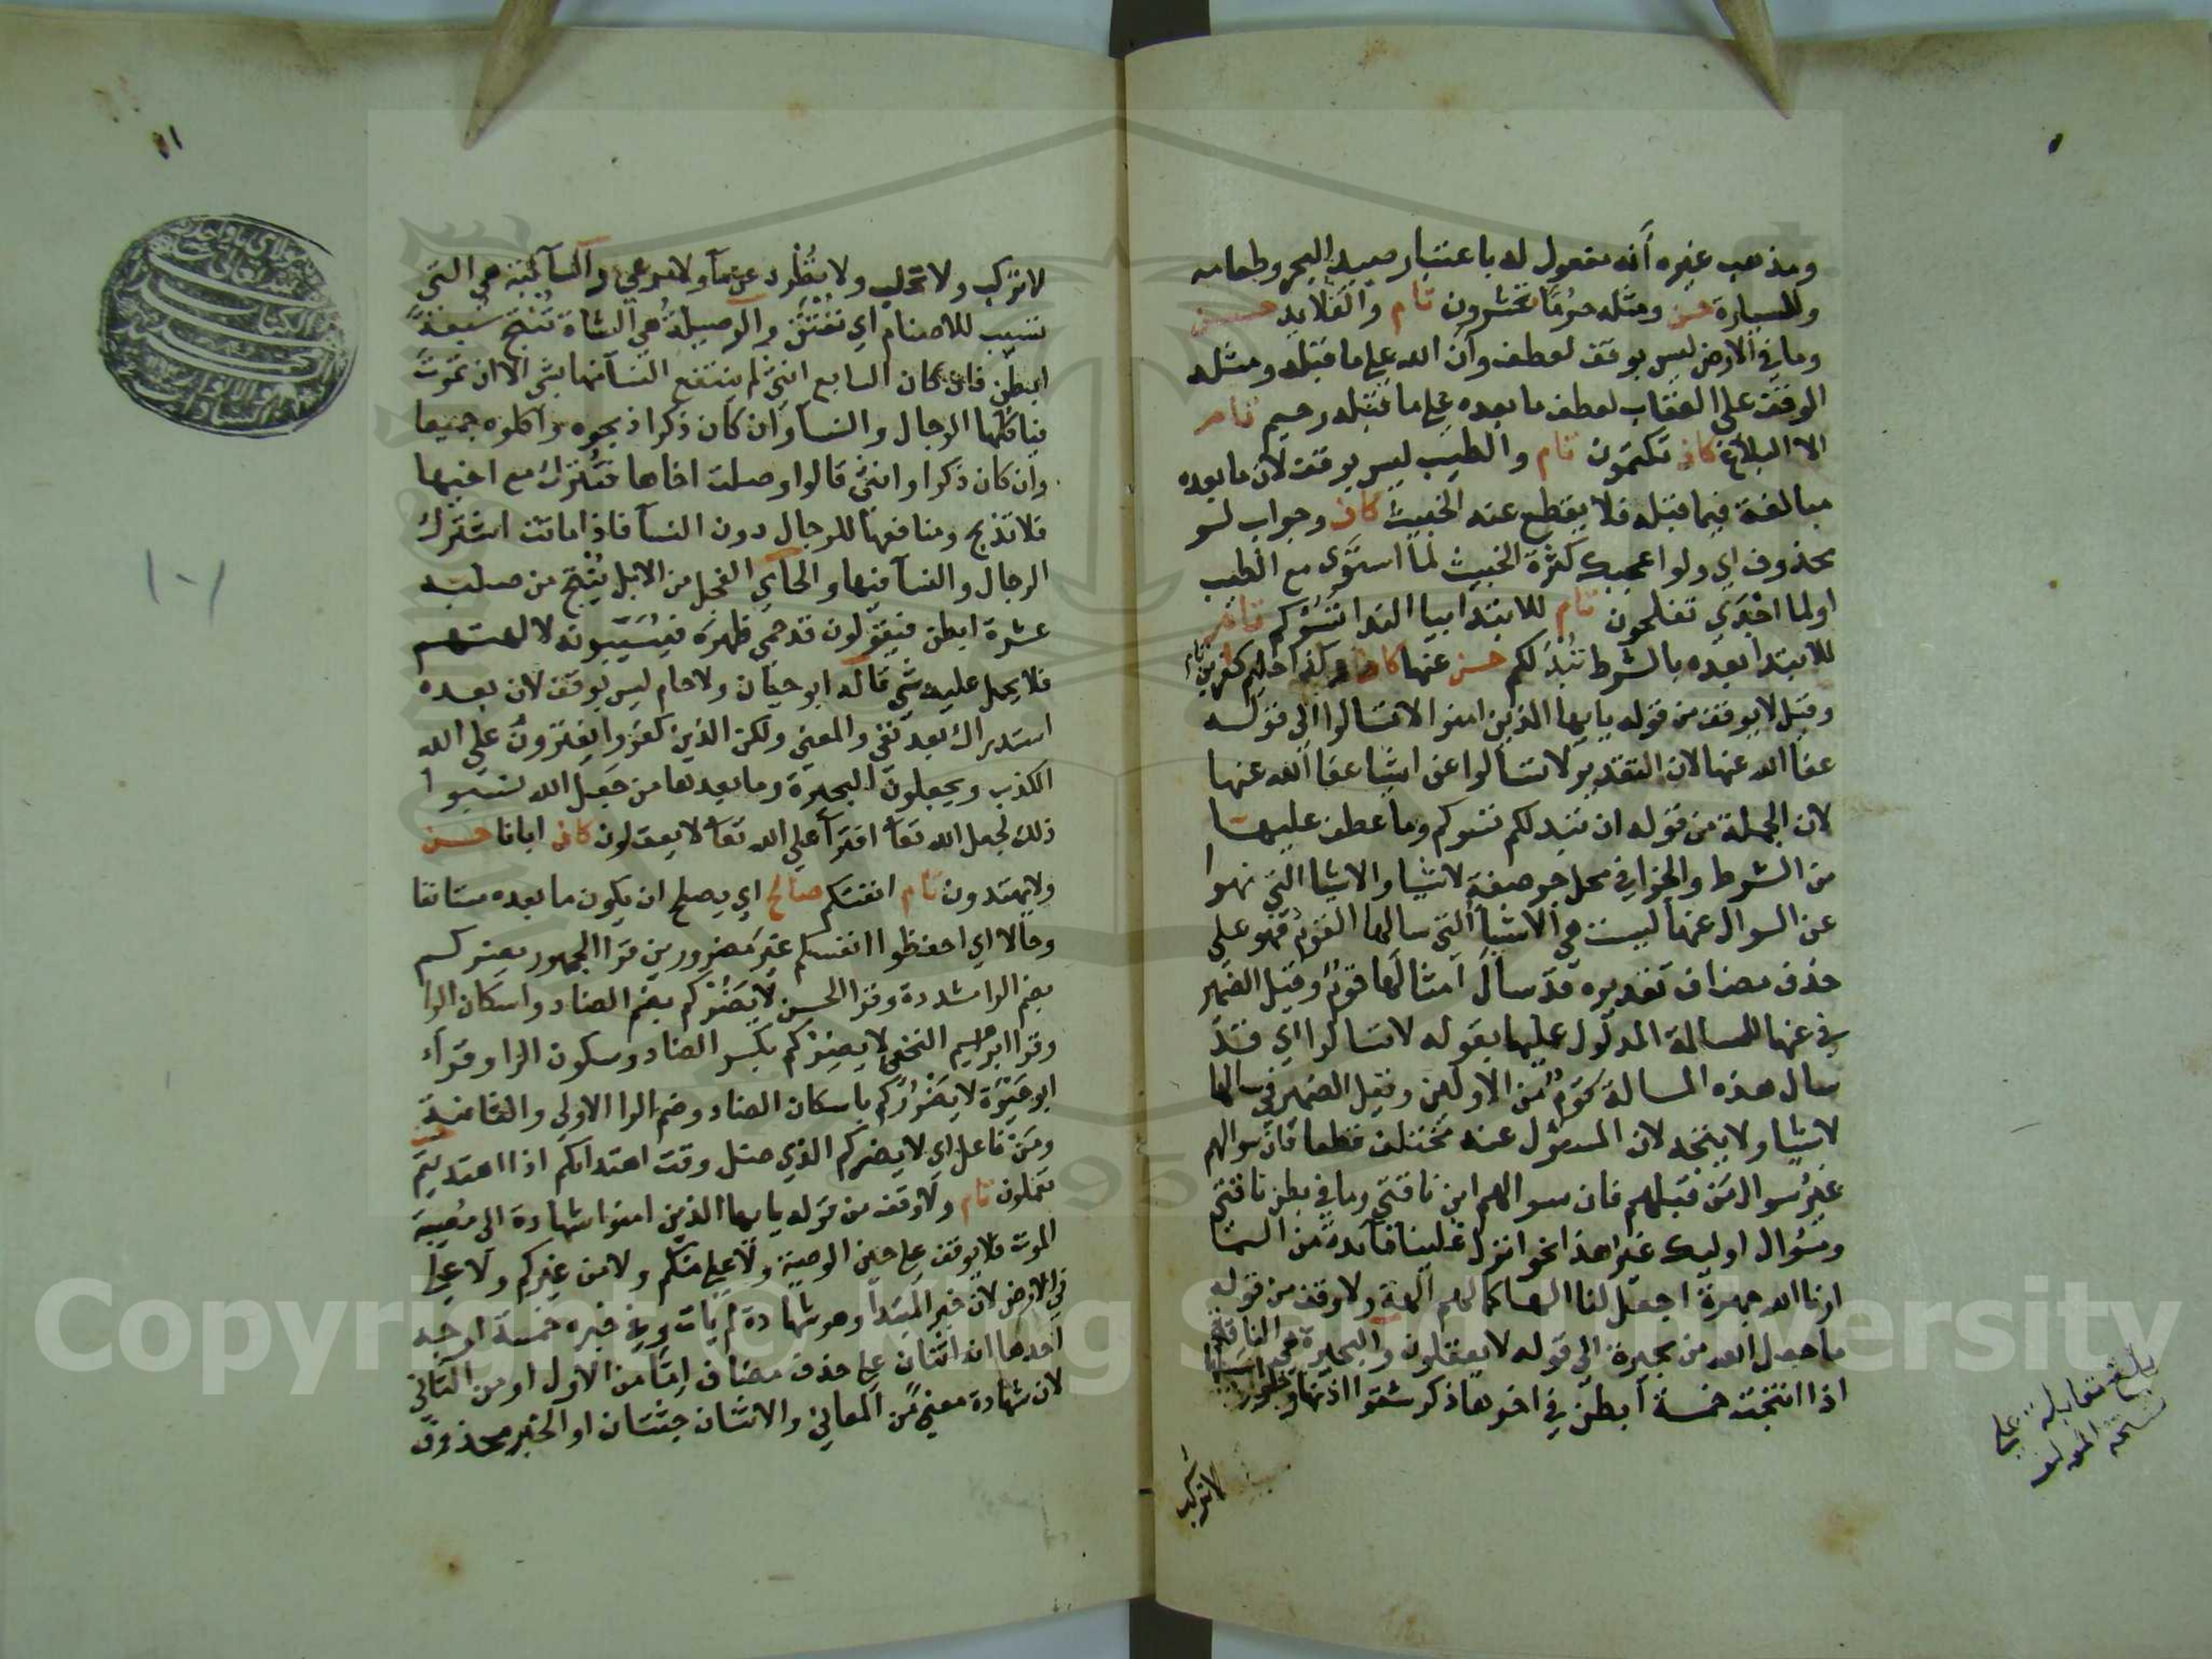 ومذهب غيره أنه مفعول له باعتبار صيد البحر وطعامه
وللسيارة حسن ومثله حرما تحشرون تام والقلايد حسن
وما في الارض ليس بوقف لعطف وأن الله على ما قبله ومثله
الوقف على العقاب لعطف ما بعده على ما قبله رحيم تام
الا البلاغ كاف تكتمون تام والطيب ليس بوقف لان ما بعده
مبالغة فيما قبله فلا يقطع عنه الخبيث كاف وجواب لو
محذوف اي ولو اعجبك كثرة الخبيث لما استوى مع الطيب
اولما اجدي تفلحون تام للابتدا بيا الندا تسؤكم
للابتدا بعده بالشرط تبد لكم حسن عنها كاف
وقيل لا يوقف من قوله يا يها الذين امنوا لا تسالوا الى قوله
عفا الله عنها لان التقدير لا تسالوا عن اشيا عفا الله عنها
لان الجملة من قوله ان تبد لكم تسوكم وما عطف عليها
من الشرط والجزا في محل جر صفة لاشيا والاشيا التي نهوا
عن السوال عنها ليست هي الاشيا التي سالها القوم فهو على
حذف مضاف تقديره قد سال امثالها قوم وقيل الضمير
في عنها للمسالة المدلول عليها بقوله لا تسالوا اي قد
سال هذه المسالة قوم من الاولين وقيل الضمير في سالها
لاشيا ولا يتجه لان المسئول عنه مختلف قطعا فان سوالهم
غير سوال من قبلهم فان سوالهم اين ناقتي وما في بطن ناقتي
وسؤال اوليك غير هذا نحو انزل علينا مائدة من السما
ارنا الله جهرة اجعل لنا الها كما لهم الهة ولا وقف من قوله
ما جعل الله من بحيرة الى قوله لا يعقلون والبحيرة هي الناقة
اذا انتجت خمسة ابطن في اخرها ذكر شقوا اذنها
لا تركب
بلغ مقابلة على
نسخة المولف
لا تركب ولا تحلب ولا تطرد عن ماء ولا مرعي والسآئبة هي التي
تسيب للاصنام اي تعتق والوصيلة هي الشاة تنتج سبعة
ابطن فان كان السابع انثى لم ينتفع النسآ منها بشي الا ان تموت
فياكلها الرجال والنسا وان كان ذكرا ذبحوه واكلوه جميعا
وان كان ذكرا وانثى قالوا وصلت اخاها فتترك مع اخيها
فلا تذبح ومنافعها للرجال دون النسآ فاذا ماتت اشترك
الرجال والنسآ فيها والحامي الفحل من الابل ينتج من صلبه
عشرة ابطن فيقولون قد حمي ظهره فيسيبونه لالهتهم
فلا يحمل عليه شي قاله ابو حيان ولا حام ليس بوقف لان بعده
استدراك بعد نفي والمعني ولكن الذين كفروا يفترون على الله
الكذب ويجعلون البحيرة وما بعدها من جعل الله نسبوا
ذلك لجعل الله تعا افترآ على الله تعا لا يعقلون كاف ابانا حسن
ولا يهتدون تام انفسكم صالح اي يصلح ان يكون ما بعده مستانفا
وحالا اي احفظوا انفسكم غير مضرورين قرا الجمهور يضركم
بضم الرا مشددة وقرا الحسن لا يضركم بضم الضاد واسكان الرا
وقرا ابراهيم النخعي لا يضركم بكسر الضاد وسكون الرا وقرأ
ابو حيوة لا يضرركم باسكان الضاد وضم الرا الاولى والثانية
ومن فاعل اي لا يضركم الذي ضل وقت اهتدائكم اذا اهتديتم
تعملون تام ولا وقف من قوله يا يها الذين امنوا شهادة الى مصيبة
الموت فلا يوقف على حين الوصية ولا على منكم ولا من غيركم ولا على
في الارض لان خبر المبتدا وهو شهادة لم يات وفي خبره خمسة اوجه
احدها انه اثنان على حذف مضاف اما من الاول او من الثاني
لان شهادة معني من المعاني والاثنان جثتان او الخبر محذوف